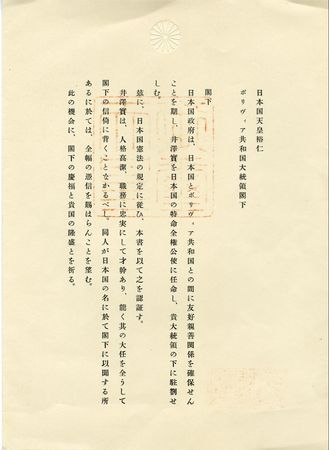 日本国天皇裕仁
ボリヴィア共和国大統領閣下
閣下
日本国政府は、日本国とボリヴィア共和国との間に友好親善関係を確保せん
ことを期し、井澤實を日本国の特命全権公使に任命し、貴大統領の下に駐劄せ
しむ。
茲に、日本国憲法の規定に従ひ、本書を以て之を認証す。
井澤實は、人格高潔、職務に忠実にして才幹あり、能く其の大任を全うして
閣下の信倚に背くことなかるべし。同人が日本国の名に於て閣下に以聞する所
あるに於ては、全幅の憑信を賜はらんことを望む。
此の機会に、閣下の慶福と貴国の隆盛とを祈る。